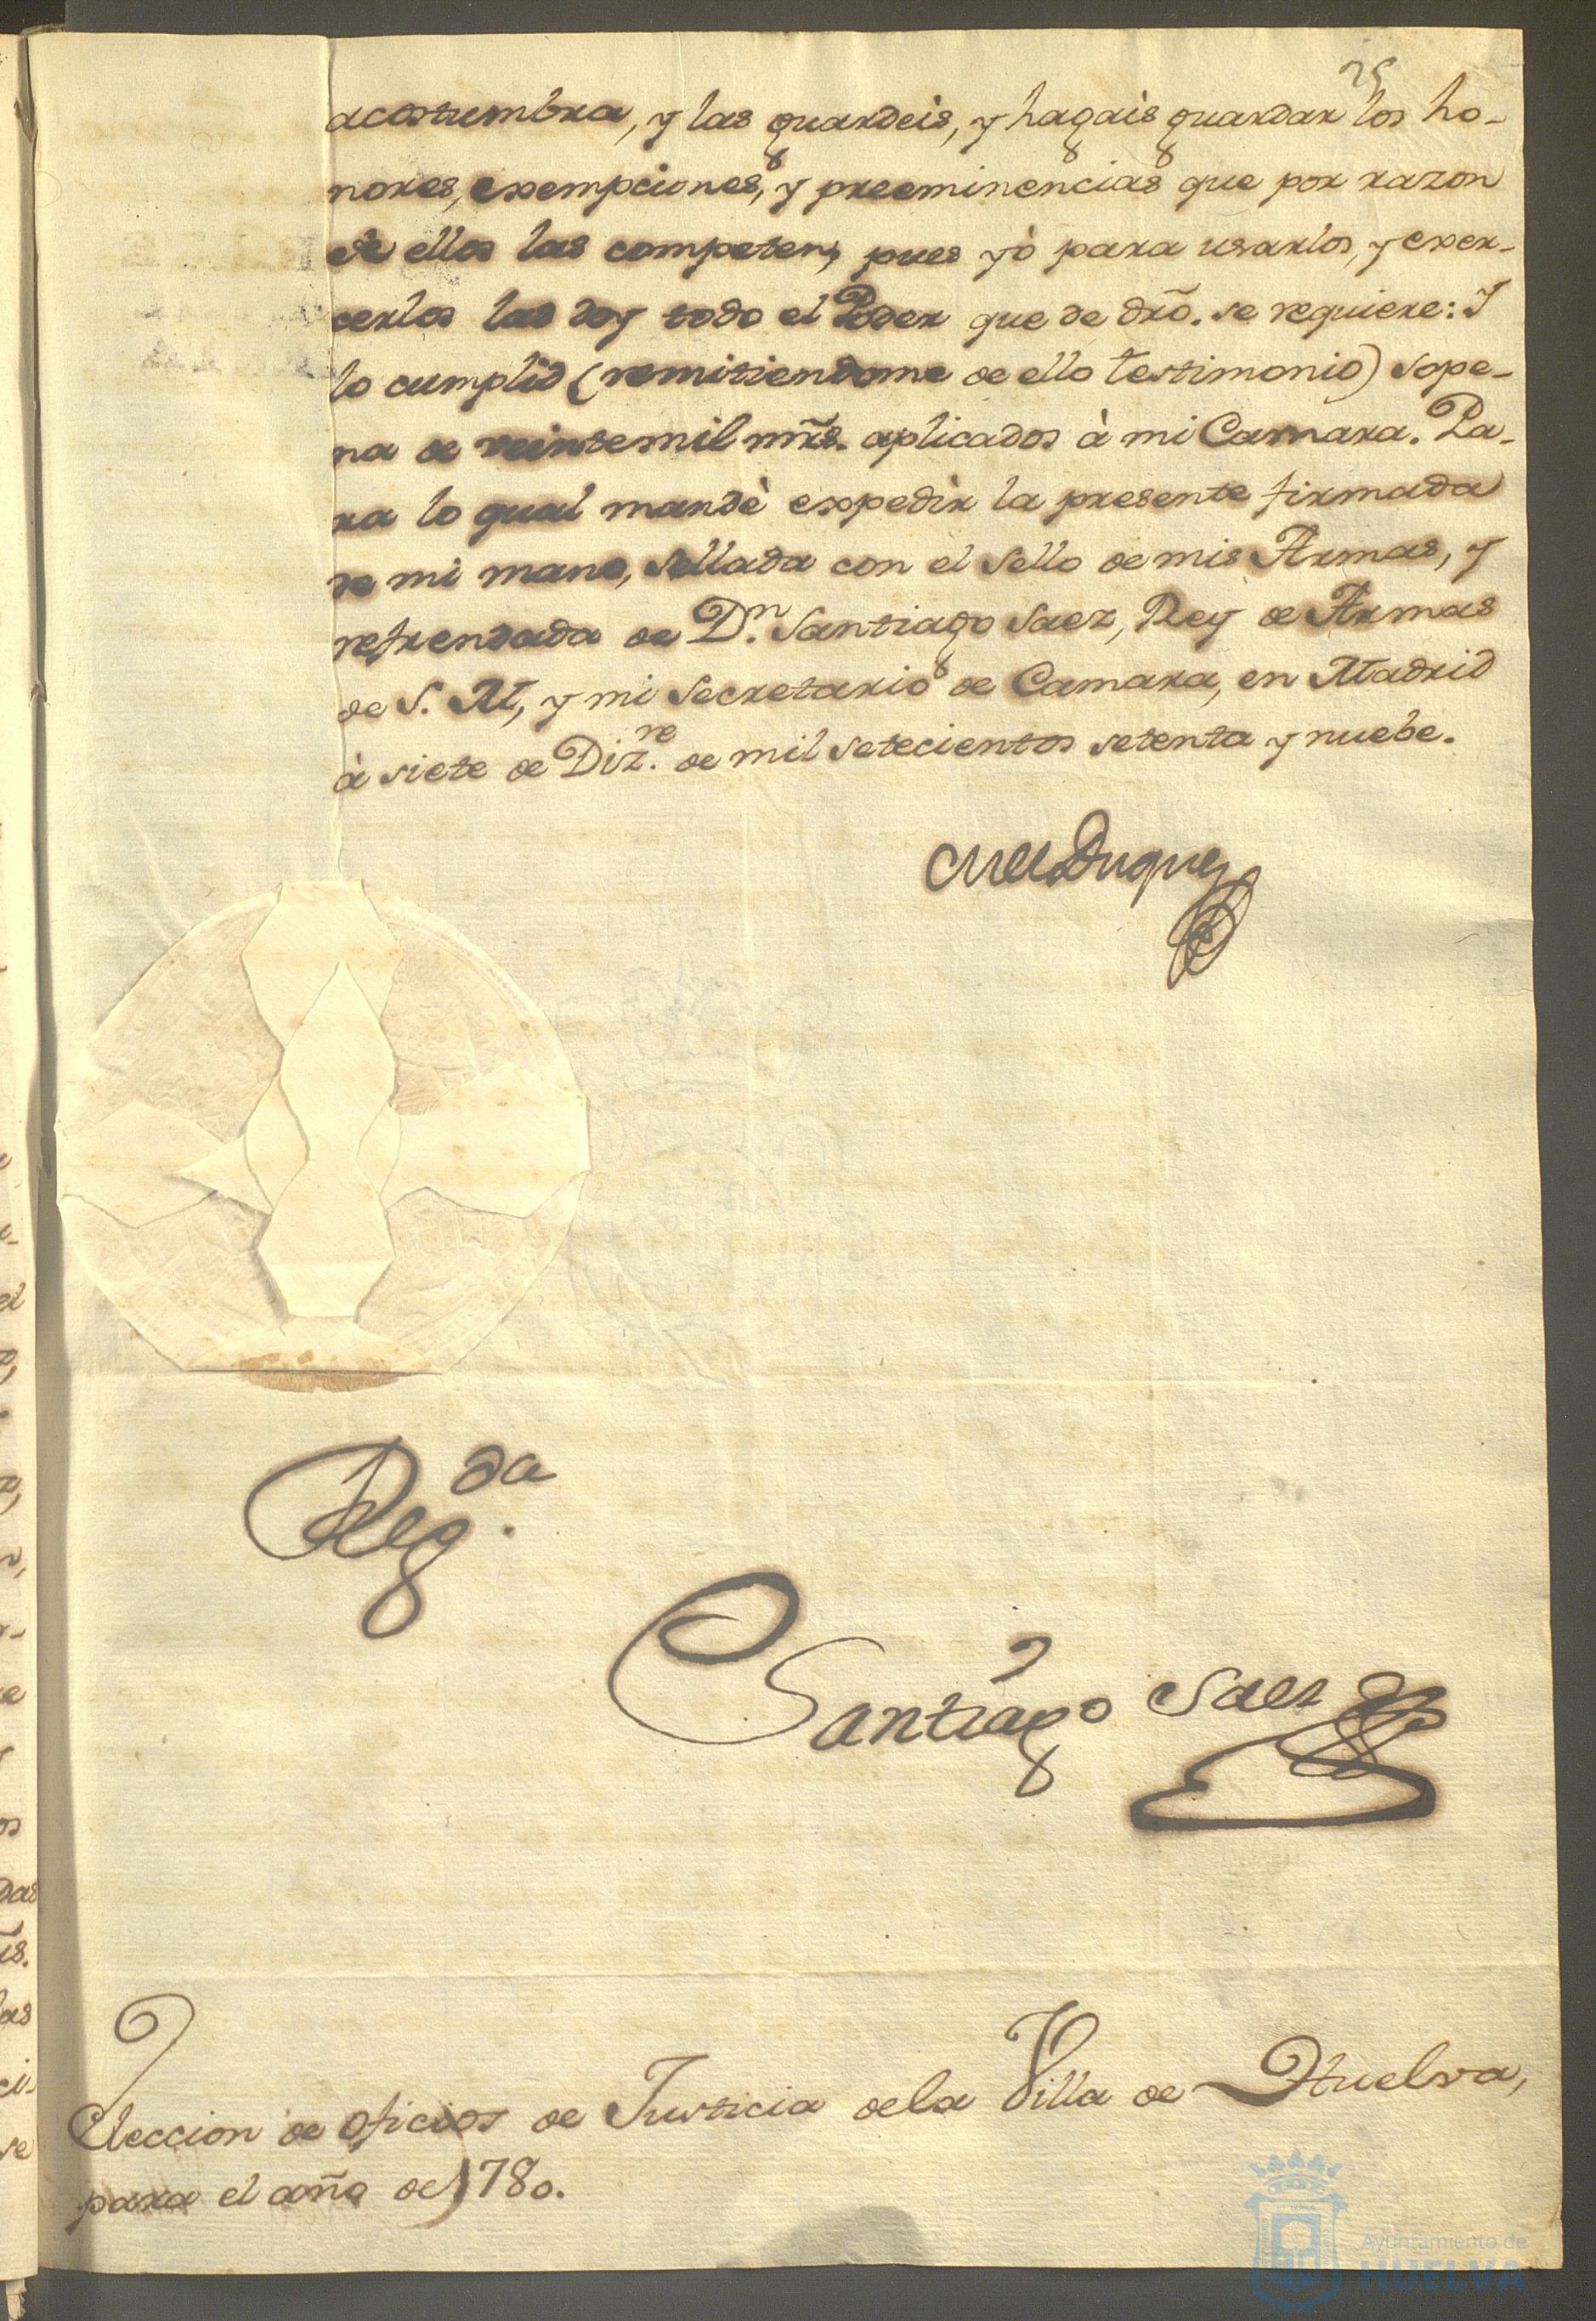 25
acostumbra, y las guardeis, y hagais guardar los ho-
nores, exempciones, y preeminencias que por razon
de ellos las competen, pues yò para usarlos, y exer-
cerlos las doy todo el Poder que de dro̅. se requiere: I
lo cumplid (remitiendome de ello testimonio) sope-
na de veintemil mr̅s. aplicados à mi Camara. Pa-
ra lo qual mandè expedir la presente firmada
de mi mano, sellada con el sello de mis Armas, y
refrendada de Dⁿ. Santiago Saez, Rey de Armas
de S. M, y mi Secretario de Camara, en Madrid
à siete de Dizʳᵉ. de mil setecientos setenta y nuebe.
Duque
Regᵈᵃ.
Santiago Saez
Eleccion de oficios de Justicia dela Villa de Huelva,
para el año de 1780.
Ayuntamiento de
HUELVA